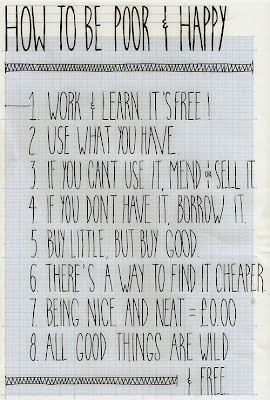 HOW TO BE POOR & HAPPY
1. WORK & LEARN. IT'S FREE!
2. USE WHAT YOU HAVE.
3. IF YOU CANT USE IT, MEND OR SELL IT.
4. IF YOU DONT HAVE IT, BORROW IT.
5. BUY LITTLE, BUT BUY GOOD.
6. THERE'S A WAY TO FIND IT CHEAPER.
7. BEING NICE AND NEAT = £0.00
8. ALL GOOD THINGS ARE WILD
& FREE.